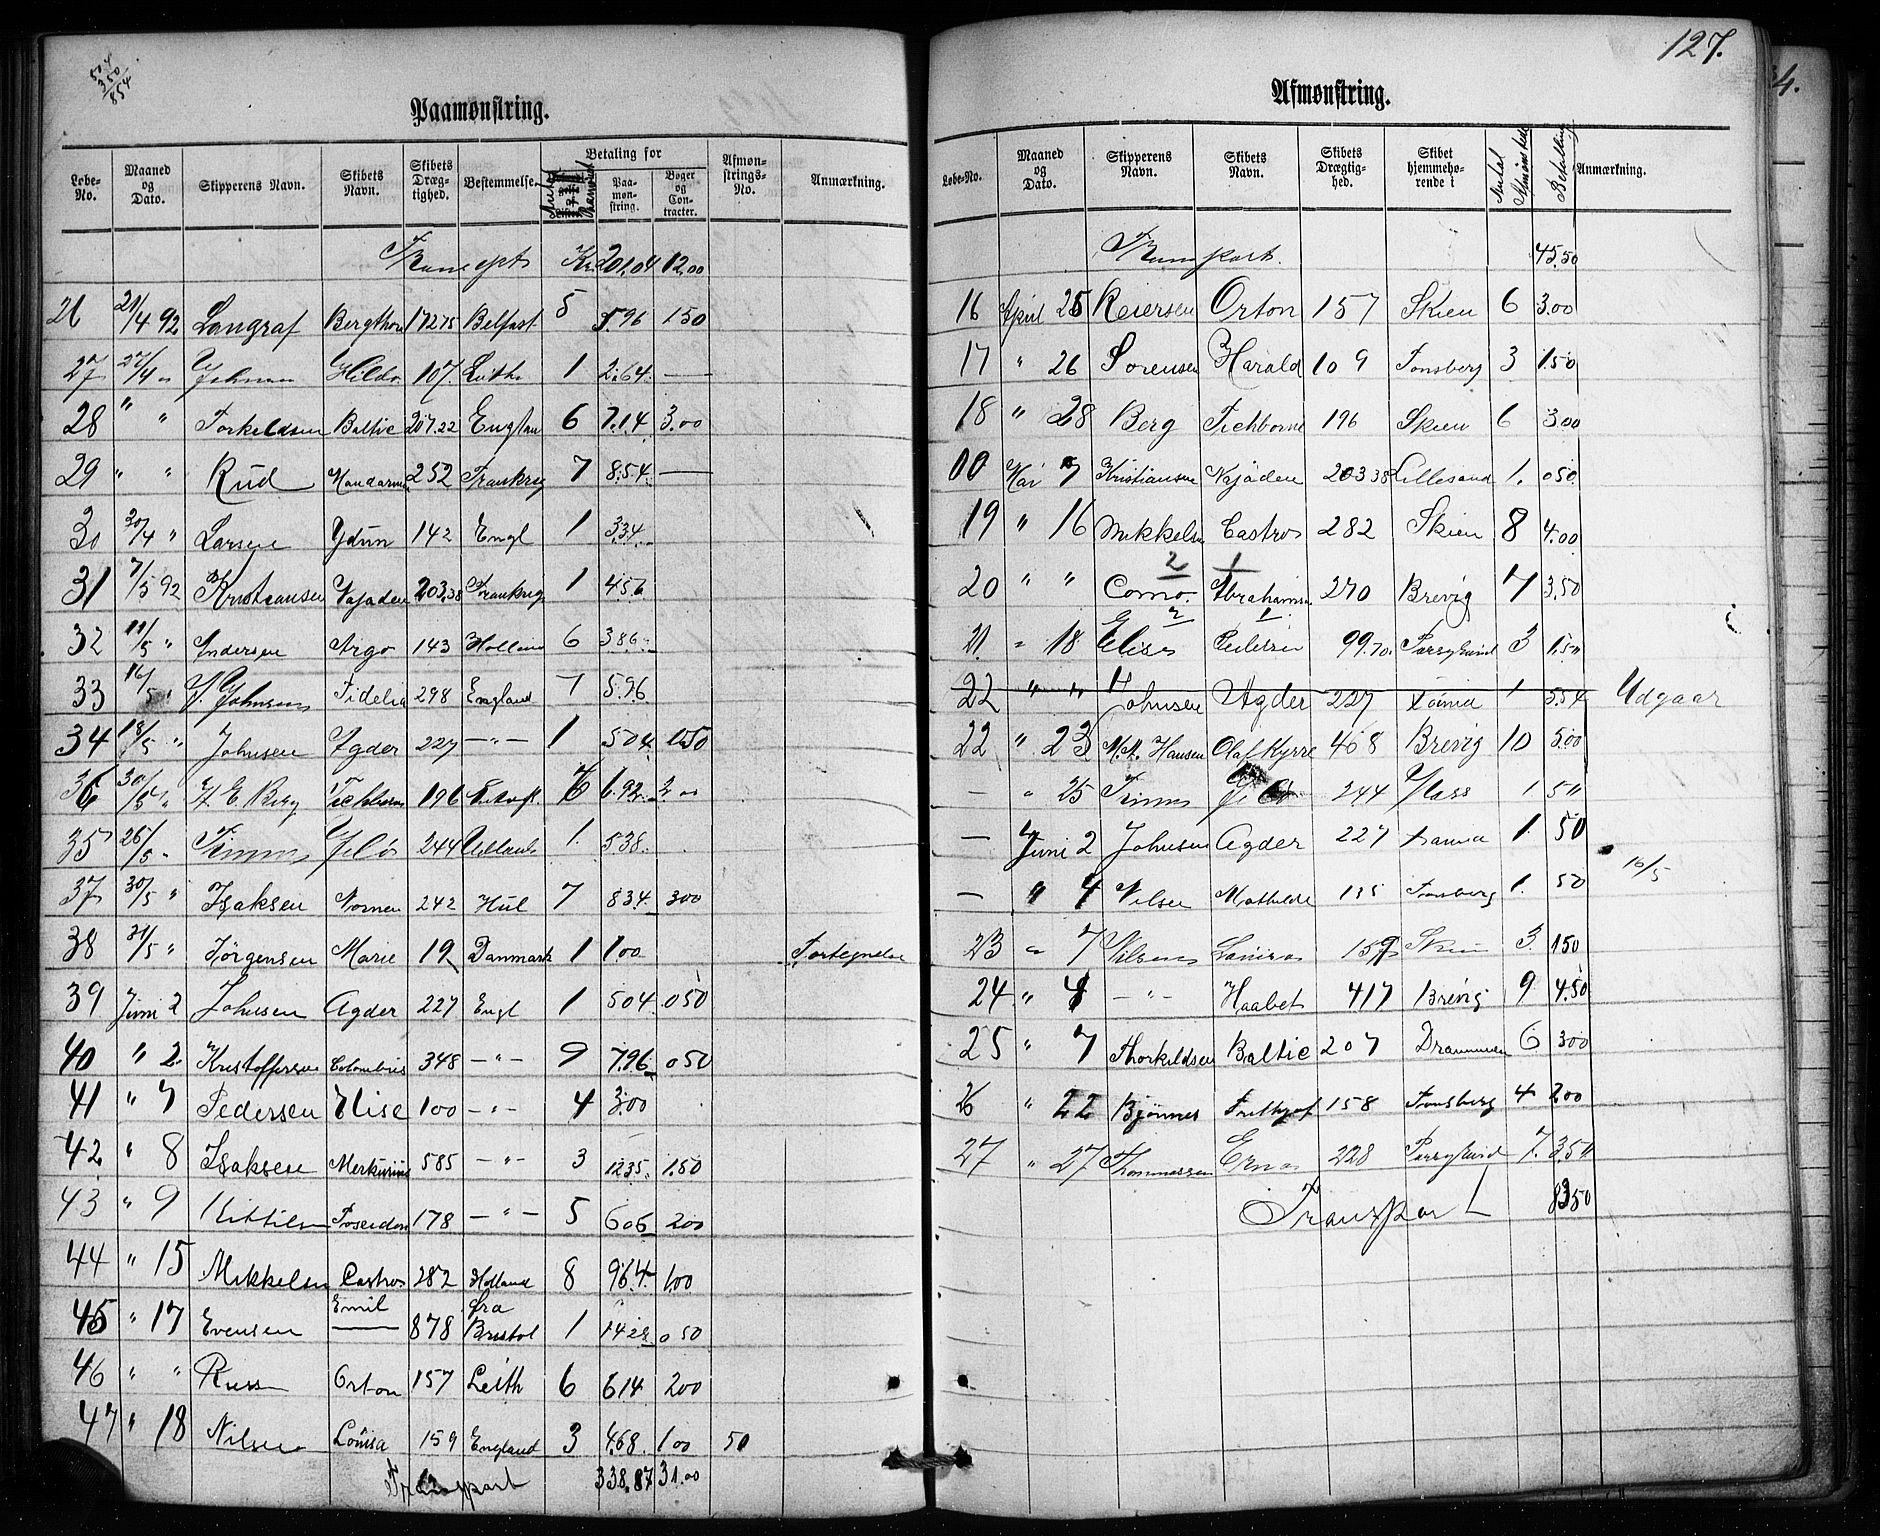 504
350
854
Paamønstring.
Løbe-No. Maaned og Dato. Skipperens Navn. Skibets Navn. Skibets Dræg-tighed. Bestemmelse. Betaling for Paa-møn-string. Bøger og Con-tracter. Afmøn-strings-No. Anmærkning.
Transport Kr. 201,04 12.00
26 21/4 92 Langraf Bergthora 172 75 Belfast 5 5 96 1 50
27 27/4 " Johnsen Hilda 107. Leith 1 2.64. —
28 " " Torkeldsen Baltic 207.22 Englan 6 7.14. 3.00
29 " " Rud 252 Frankrig 7 8.54. —
30 30/4 " Larsen Ydun 142 Engl 1 3.34.
31 7/5 92 Kristiansen Najaden 203.38 Frankrig 1 4.56
32 11/5 " Andersen Argo 143 Holland 6 3.86.
33 16/5 " J. Johnsen Fidelia 298 England 7 5.96
34 18/5 " Johnsen Agder 227 —"— 1 504. 1.50
36 30/5 " H. E. Berg Tichborne 196 6 6.92. 2.00
35 26/5 " Finnes Jelø 244 1. 5.38.
37 30/5 " Isaksen Nornen 242 Hul 7 8.34. 3.00
38 31/5 " Jørgensen Marie 19 Danmark 1 1.00 Fortegnelse
39 Juni 2 Johnsen Agder 227 Engl 1 504. 050
40 " 2. Kristoffersen Colombus 348 —"— 9 7.96 0 50
41 " 7 Pedersen Elise 100 —"— 4 3.00
42 " 8 Isaksen Merkurius 585 —"— 3 12.35. 1.50
43 " 9 Kittilsen Poseidon 178 —"— 5 606 2.00
44 " 15 Mikkelsen Castro 282 Holland 8 964. 1.00
45 " 17 Evensen Emil 878 fra Bristol 1 14 28 0 50
46 " " Orton 157 Leith 6 6.14 2.00
47 " 18 Nilsen Louisa 159 England 3 4.68. 1.00 50
Transport 338.87 31.00
127.
Afmønstring.
Løbe-No. Maaned og Dato. Skipperens Navn. Skibets Navn. Skibets Drægtig-hed. Skibet hjemmehø-rende i Antal Betaling Anmærkning.
Transport. 45.50
16 April 25 Reiersen Orton 157 Skien 6 3.00
17 " 26 Sorensen Harald 109 Tonsberg 3 1.50
18 " 28 Berg Tichborne 196 Skien 6 3.00
00 Mai 7 Kristiansen Najaden 203 38 Lillesand 1. 0 50.
19 " 16 Mikkelsen Castro 282 Skien 8 4.00
2 1
20 " " Como. Abrahamsen 270 Brevig 7 3.50
2 1
21. " 18 Elise Pedersen 99.70. Porsgrund 3 1.50
22 " " Johnsen Agder 227 1 5.54 Udgaar
22 " 23 M. N. Hansen Olaf Kyrre 468 Brevig 10 5.00
— " 25 Finnes Jelø 244 Moss 1 50
— Juni 2 Johnsen Agder 227 1. 50
— " 4 Nilsen Mathilde 135 Tonsberg 1. 50 10/5
23 " 7 Nilsen Louisa 159 Skien 3. 1.50
24 " 4 —"— Haabet 417 Brevig 9 4.50
25 " 7 Thorkildsen Baltic 207 Drammen 6 3.00
26 " 22 Bjønnes Frithjof 158 Tonsberg 4 2.00
27 " 27 Thommassen Erna 228 Porsgrund 7. 3.50
Transport 83.50
4.